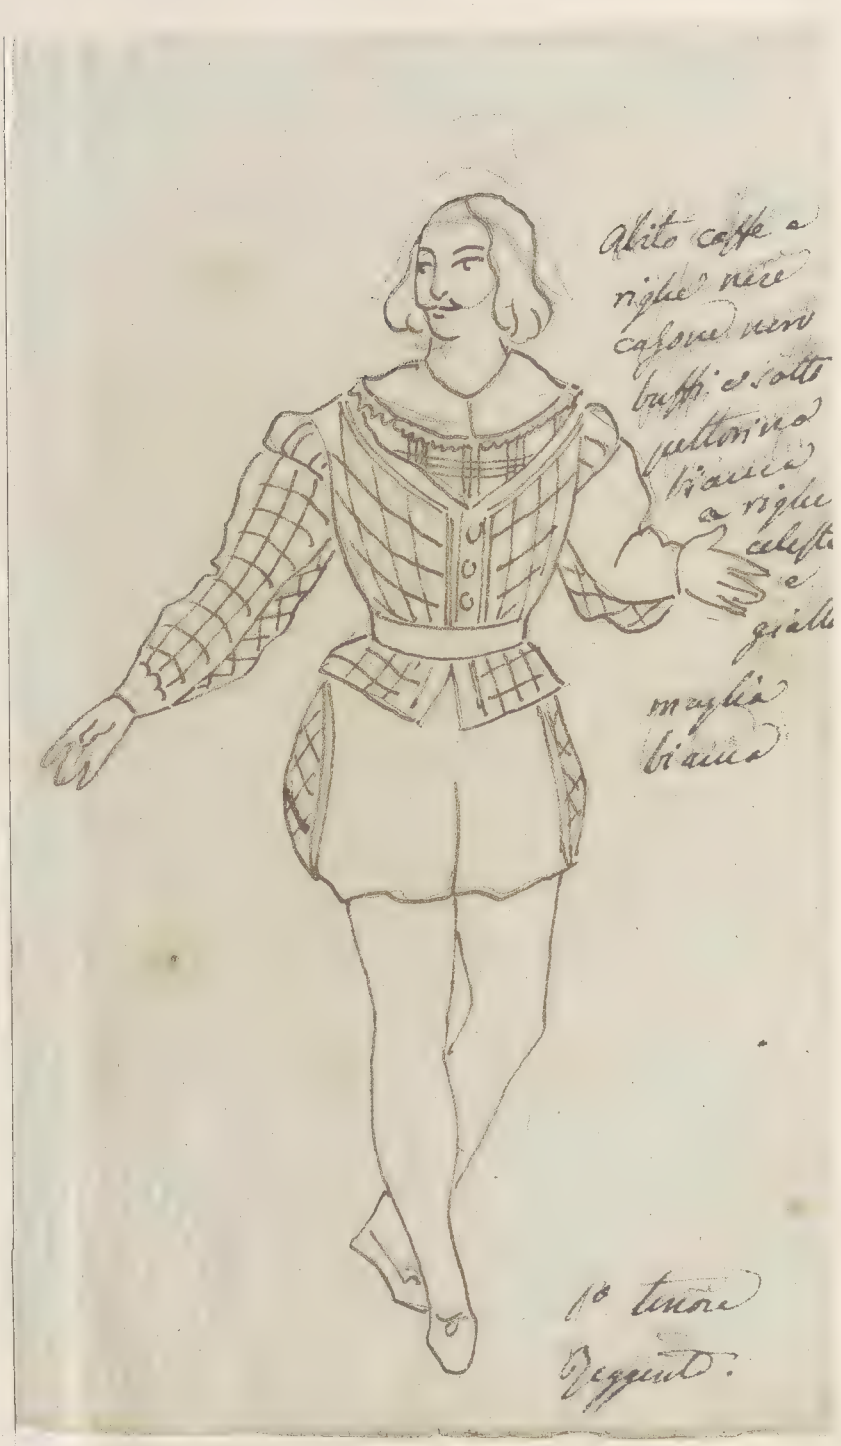 Abito caffe a
righe nere
calsone nero
buffi e sotto
pettorina
bianca
a righe
celeste
e
gialle
maglia
bianca
1º tenore
Reggente.